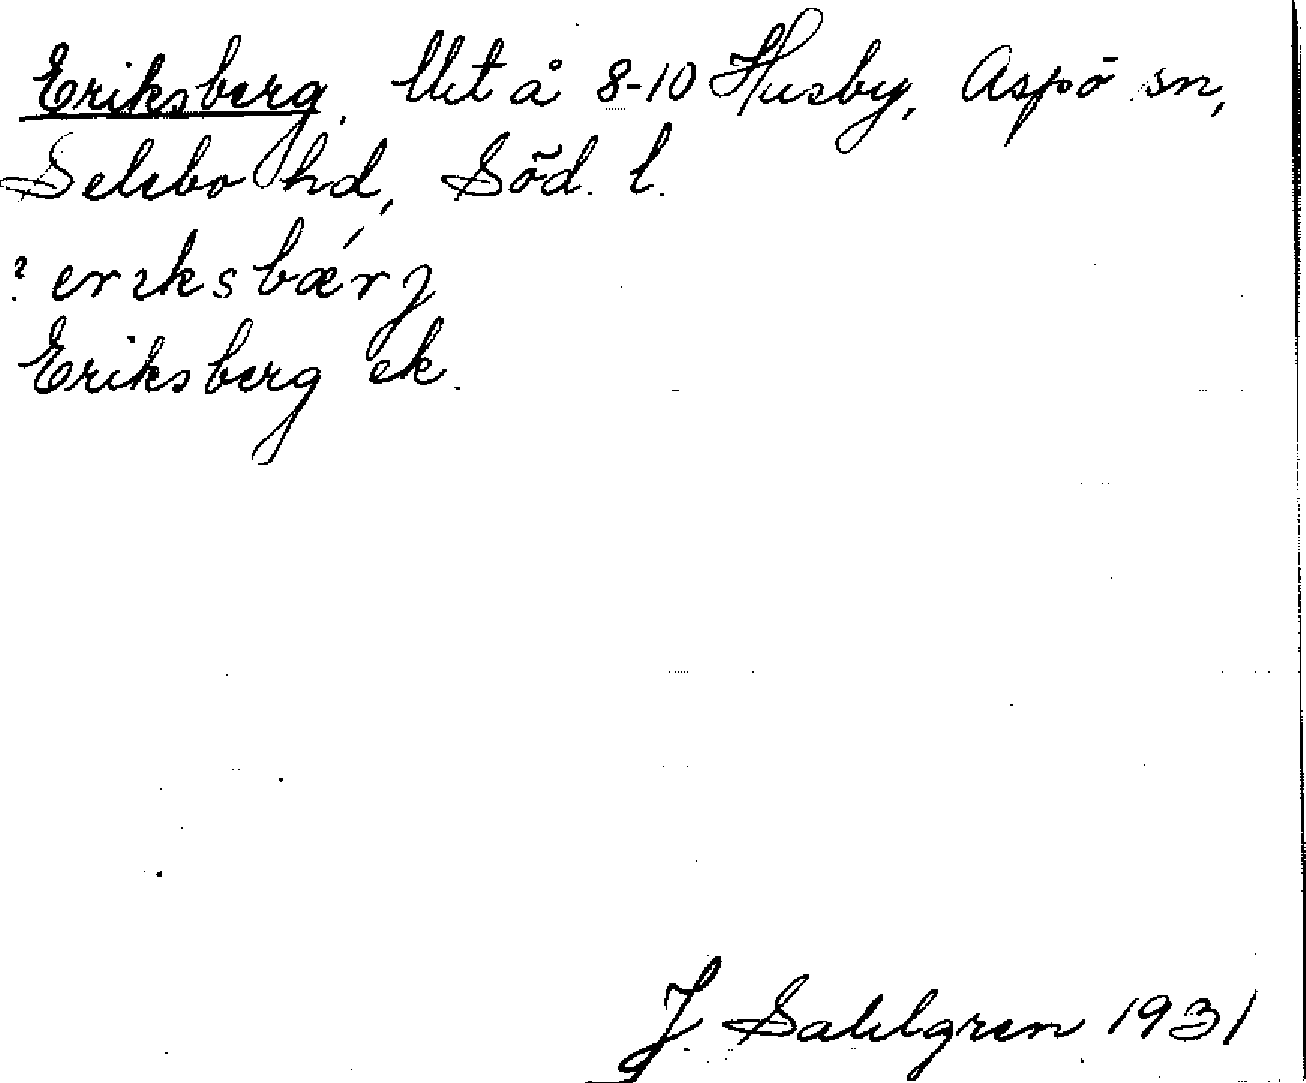 Eriksberg. Utå 8-10 Husby, Aspö sn,
Selebo hd, Söd. l.
? erıksbǽrj
Eriksberg ek.
J. Sahlgren 1931